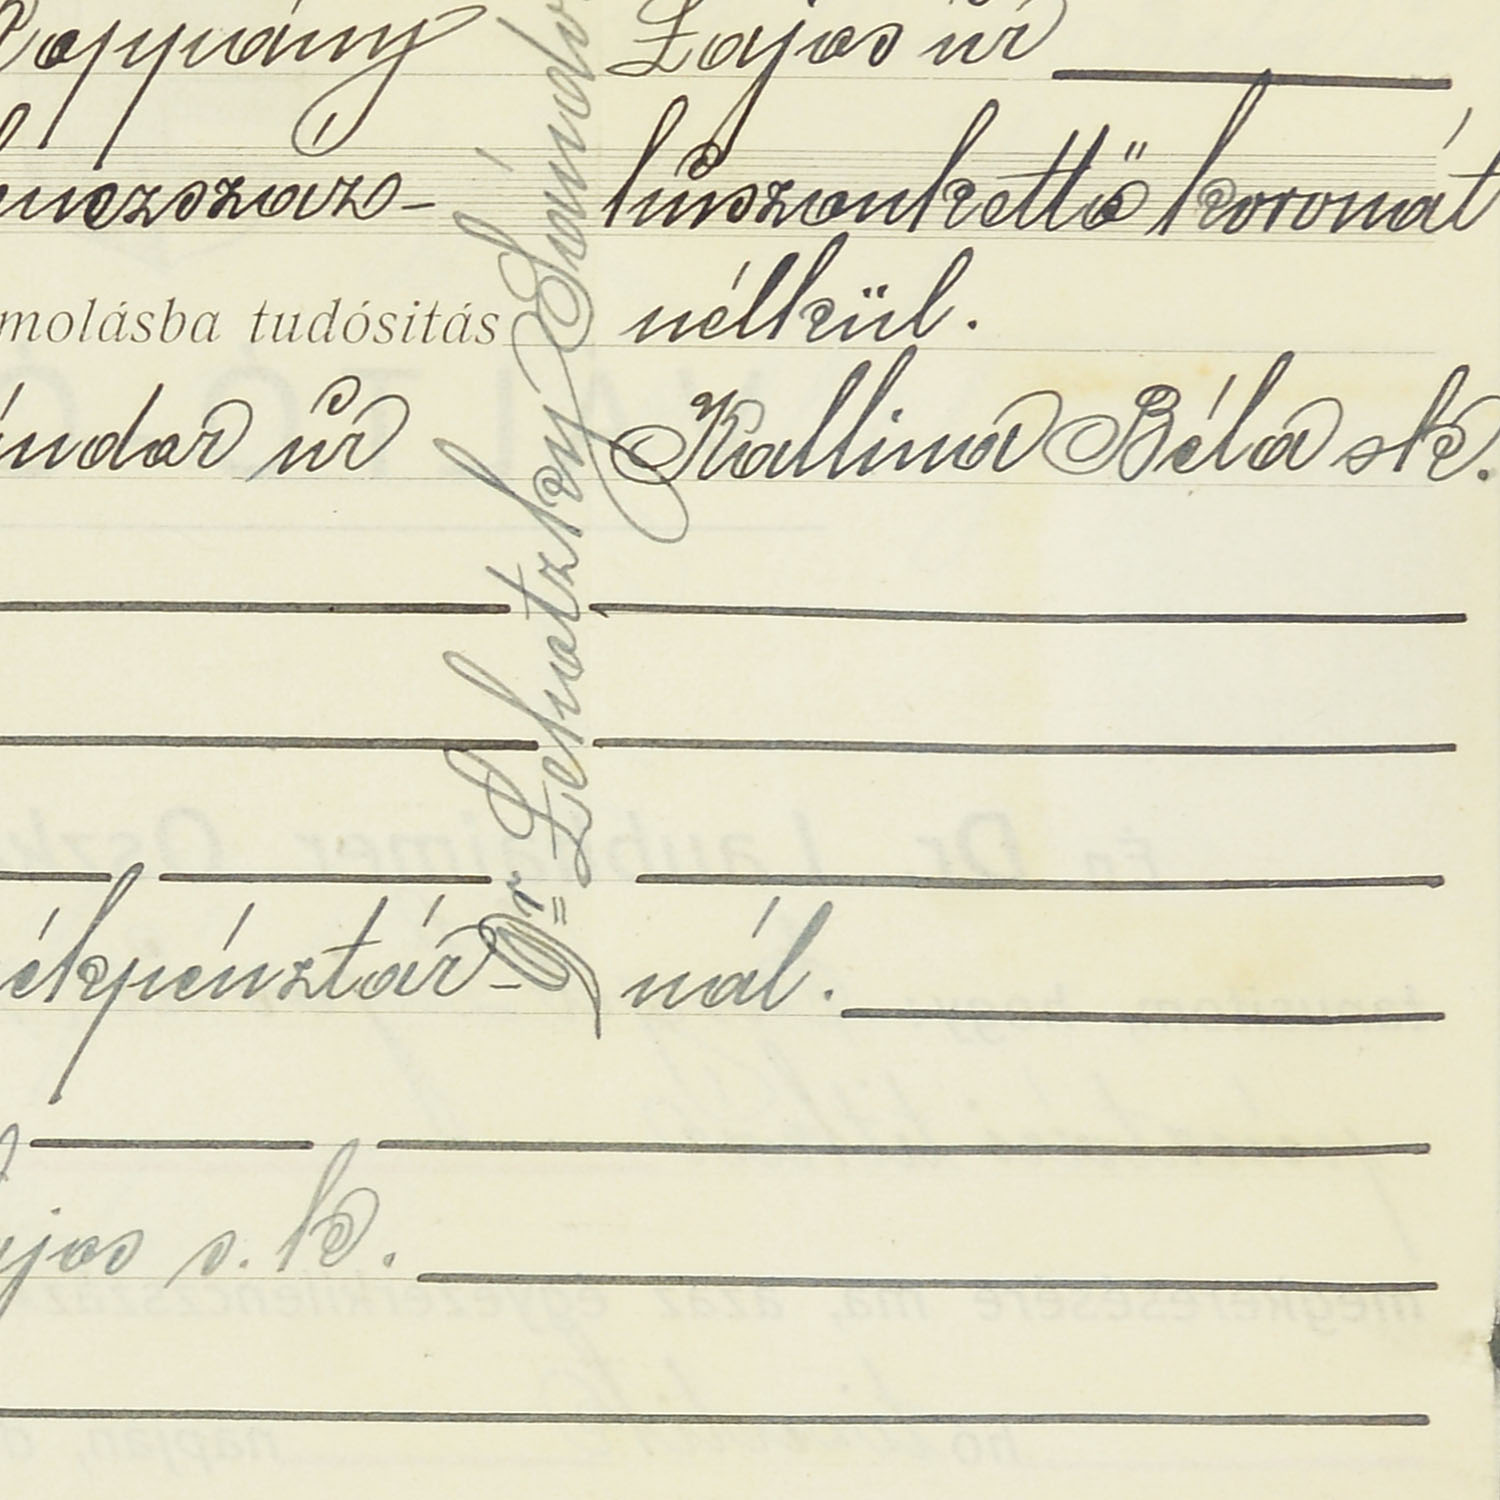 oppány Lajos úr
enczszáz- húszonkettő koronát
molásba tudósitás nélkül.
ándor úr Kallina Béla sk.
Dr= Lehutzky Sándor
ékpénztár- nál.
ajos s. k.